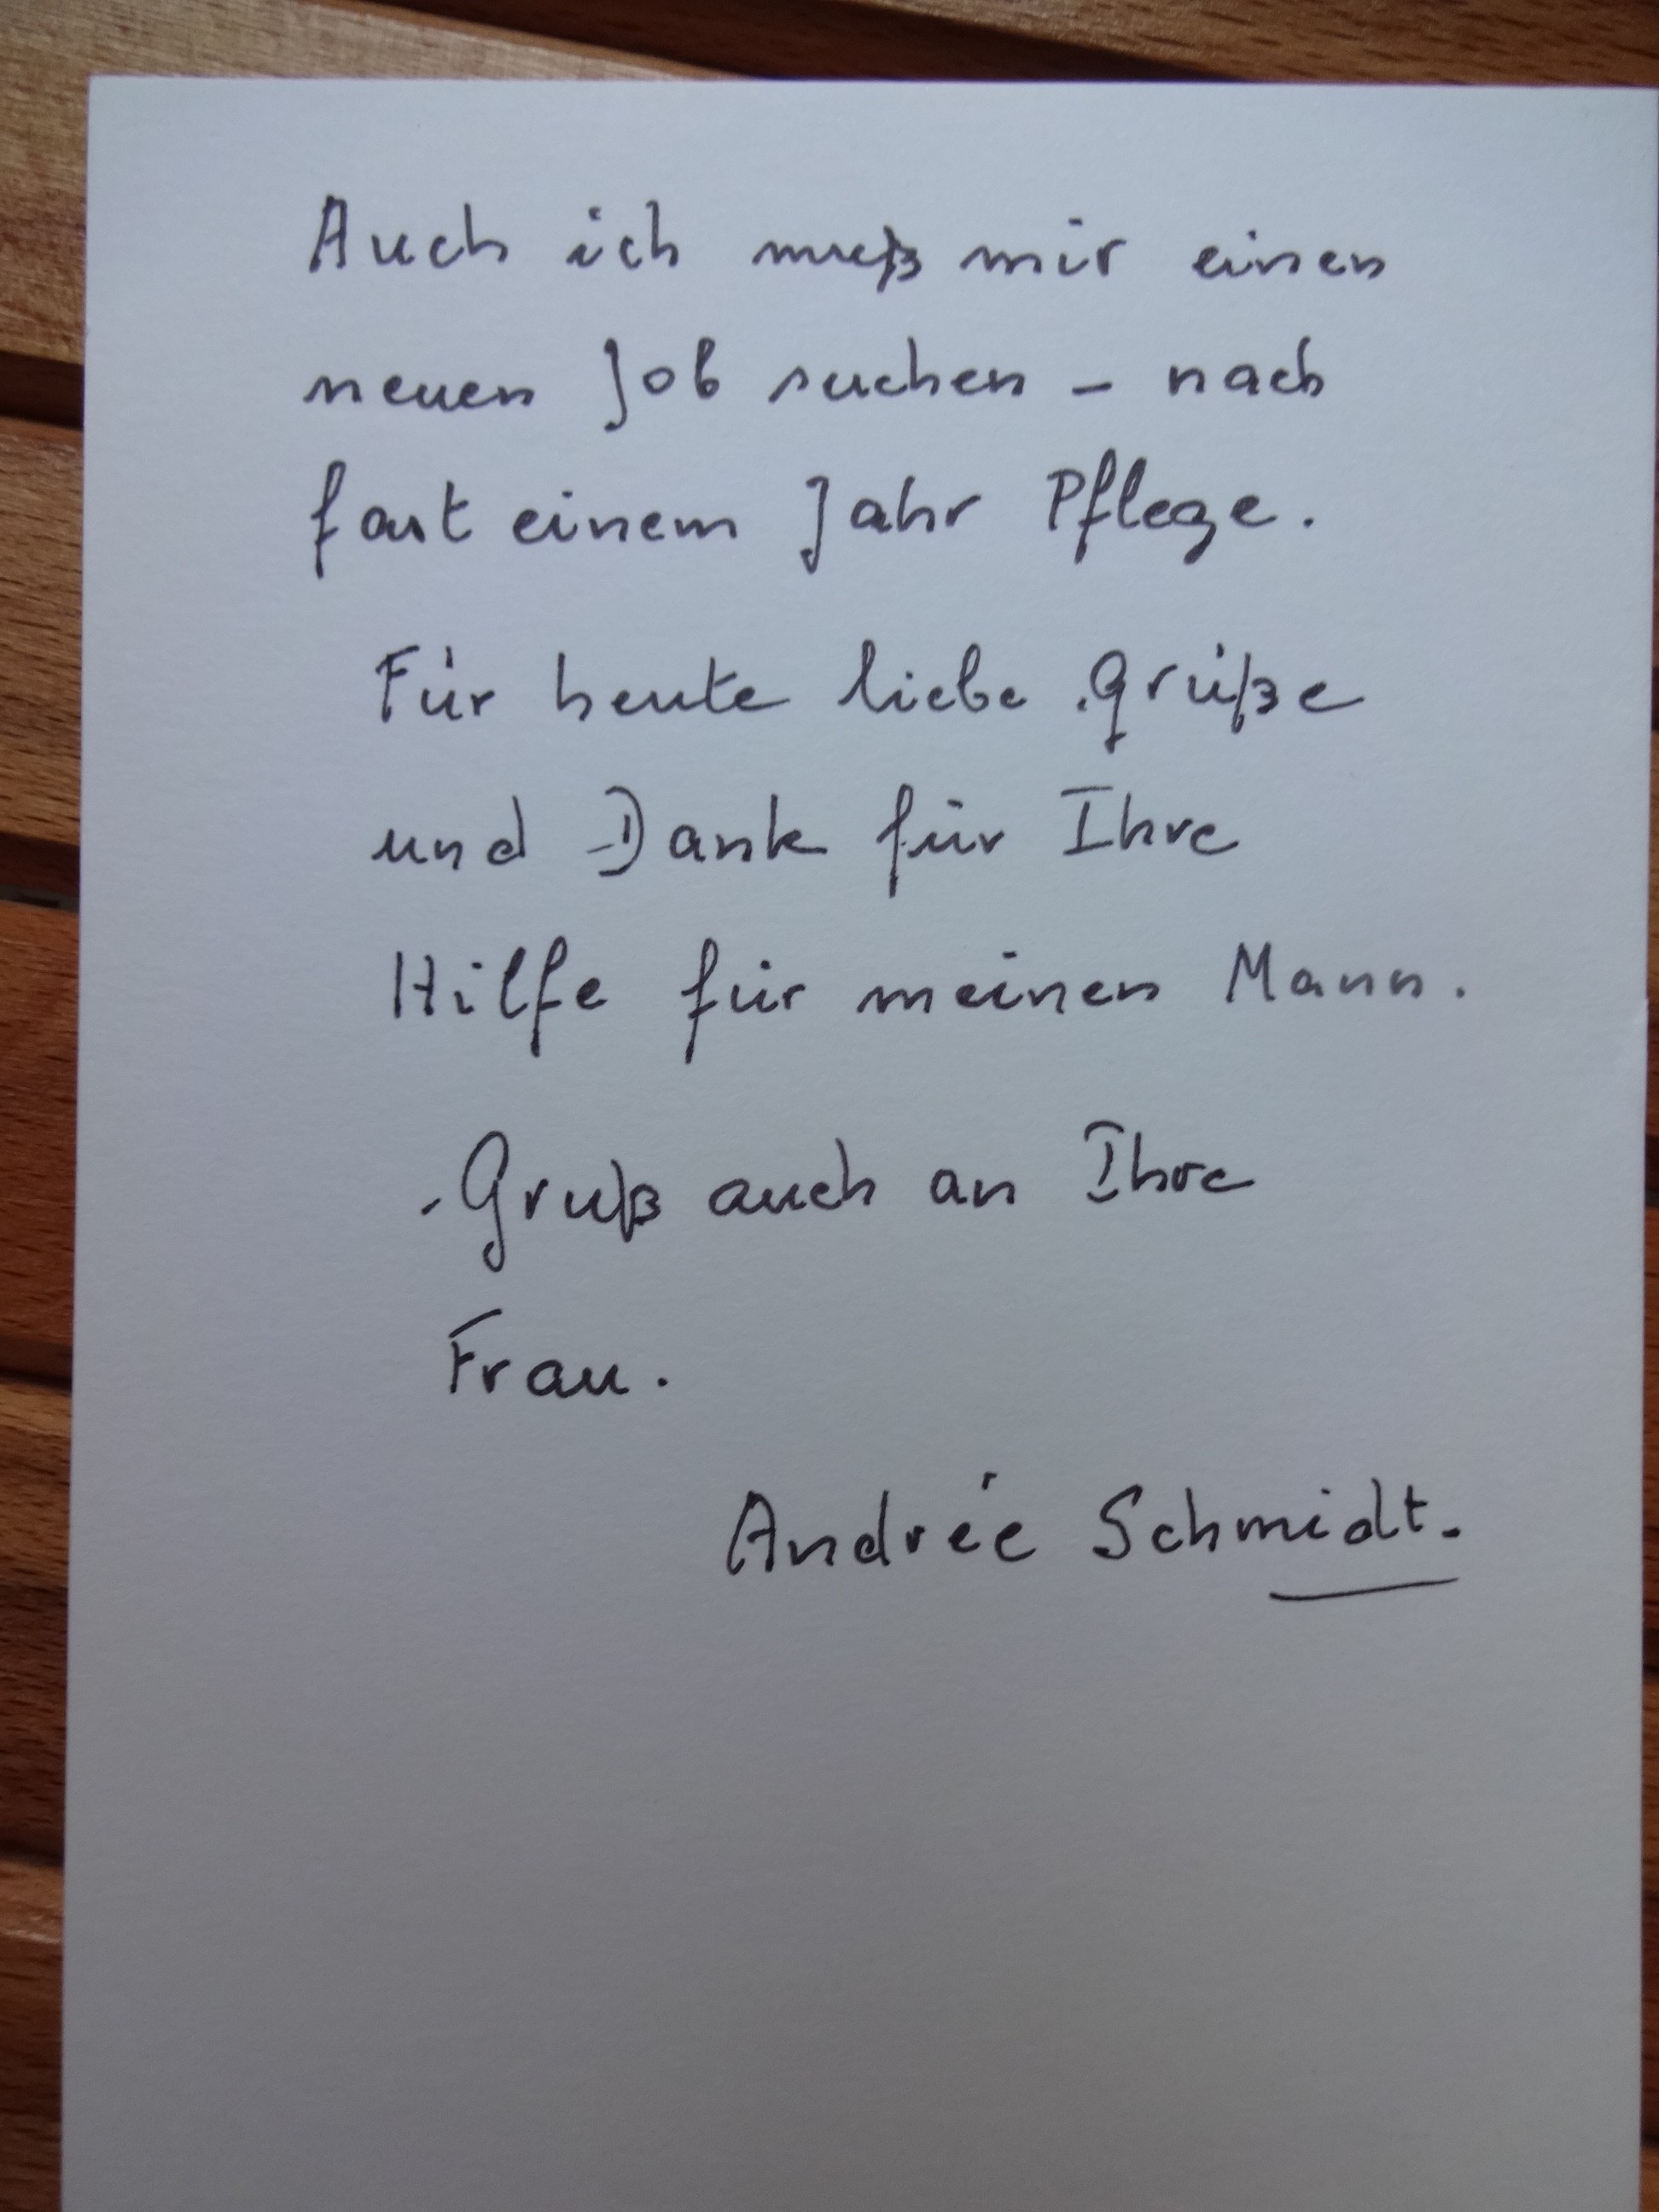 Auch ich muß mir einen
neuen Job suchen – nach
fast einem Jahr Pflege.
Für heute liebe Grüße
und Dank für Ihre
Hilfe für meinen Mann.
Gruß auch an Ihre
Frau.
Andrée Schmidt.